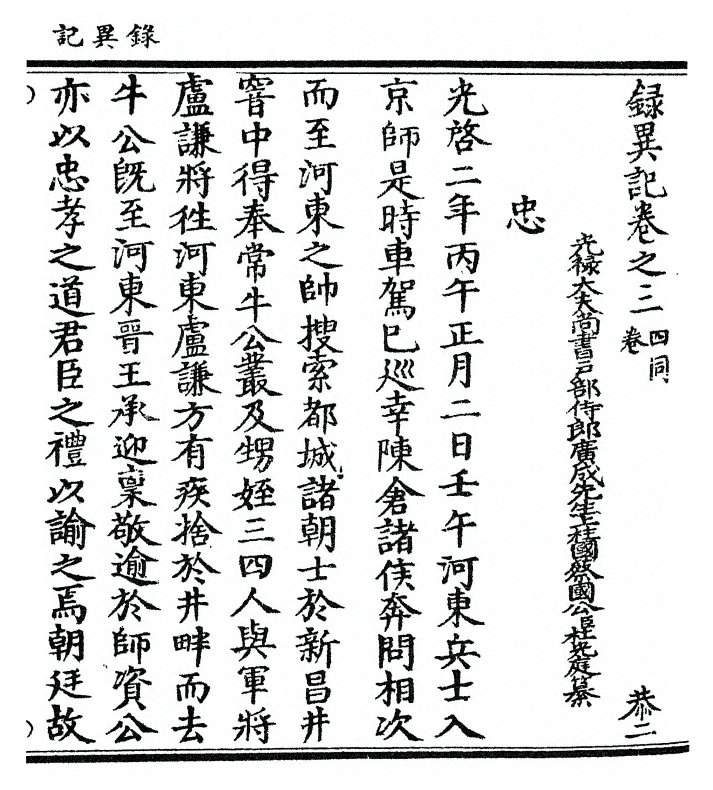 錄異記
録異記卷之三 四同卷 恭二
光禄大夫尚書戸部侍郎廣成先生上柱國蔡國公臣杜光庭纂
忠
光啓二年丙午正月二日壬午河東兵士入
京師是時車駕巳廵幸陳倉諸侯奔問相次
而至河東之帥搜索都城諸朝士於新昌井
窖中得奉常牛公叢及甥姪三四人與軍將
盧謙將徃河東盧謙方有疾捨於井畔而去
牛公旣至河東晉王承迎稟敬逾於師資公
亦以忠孝之道君臣之禮以諭之焉朝廷故